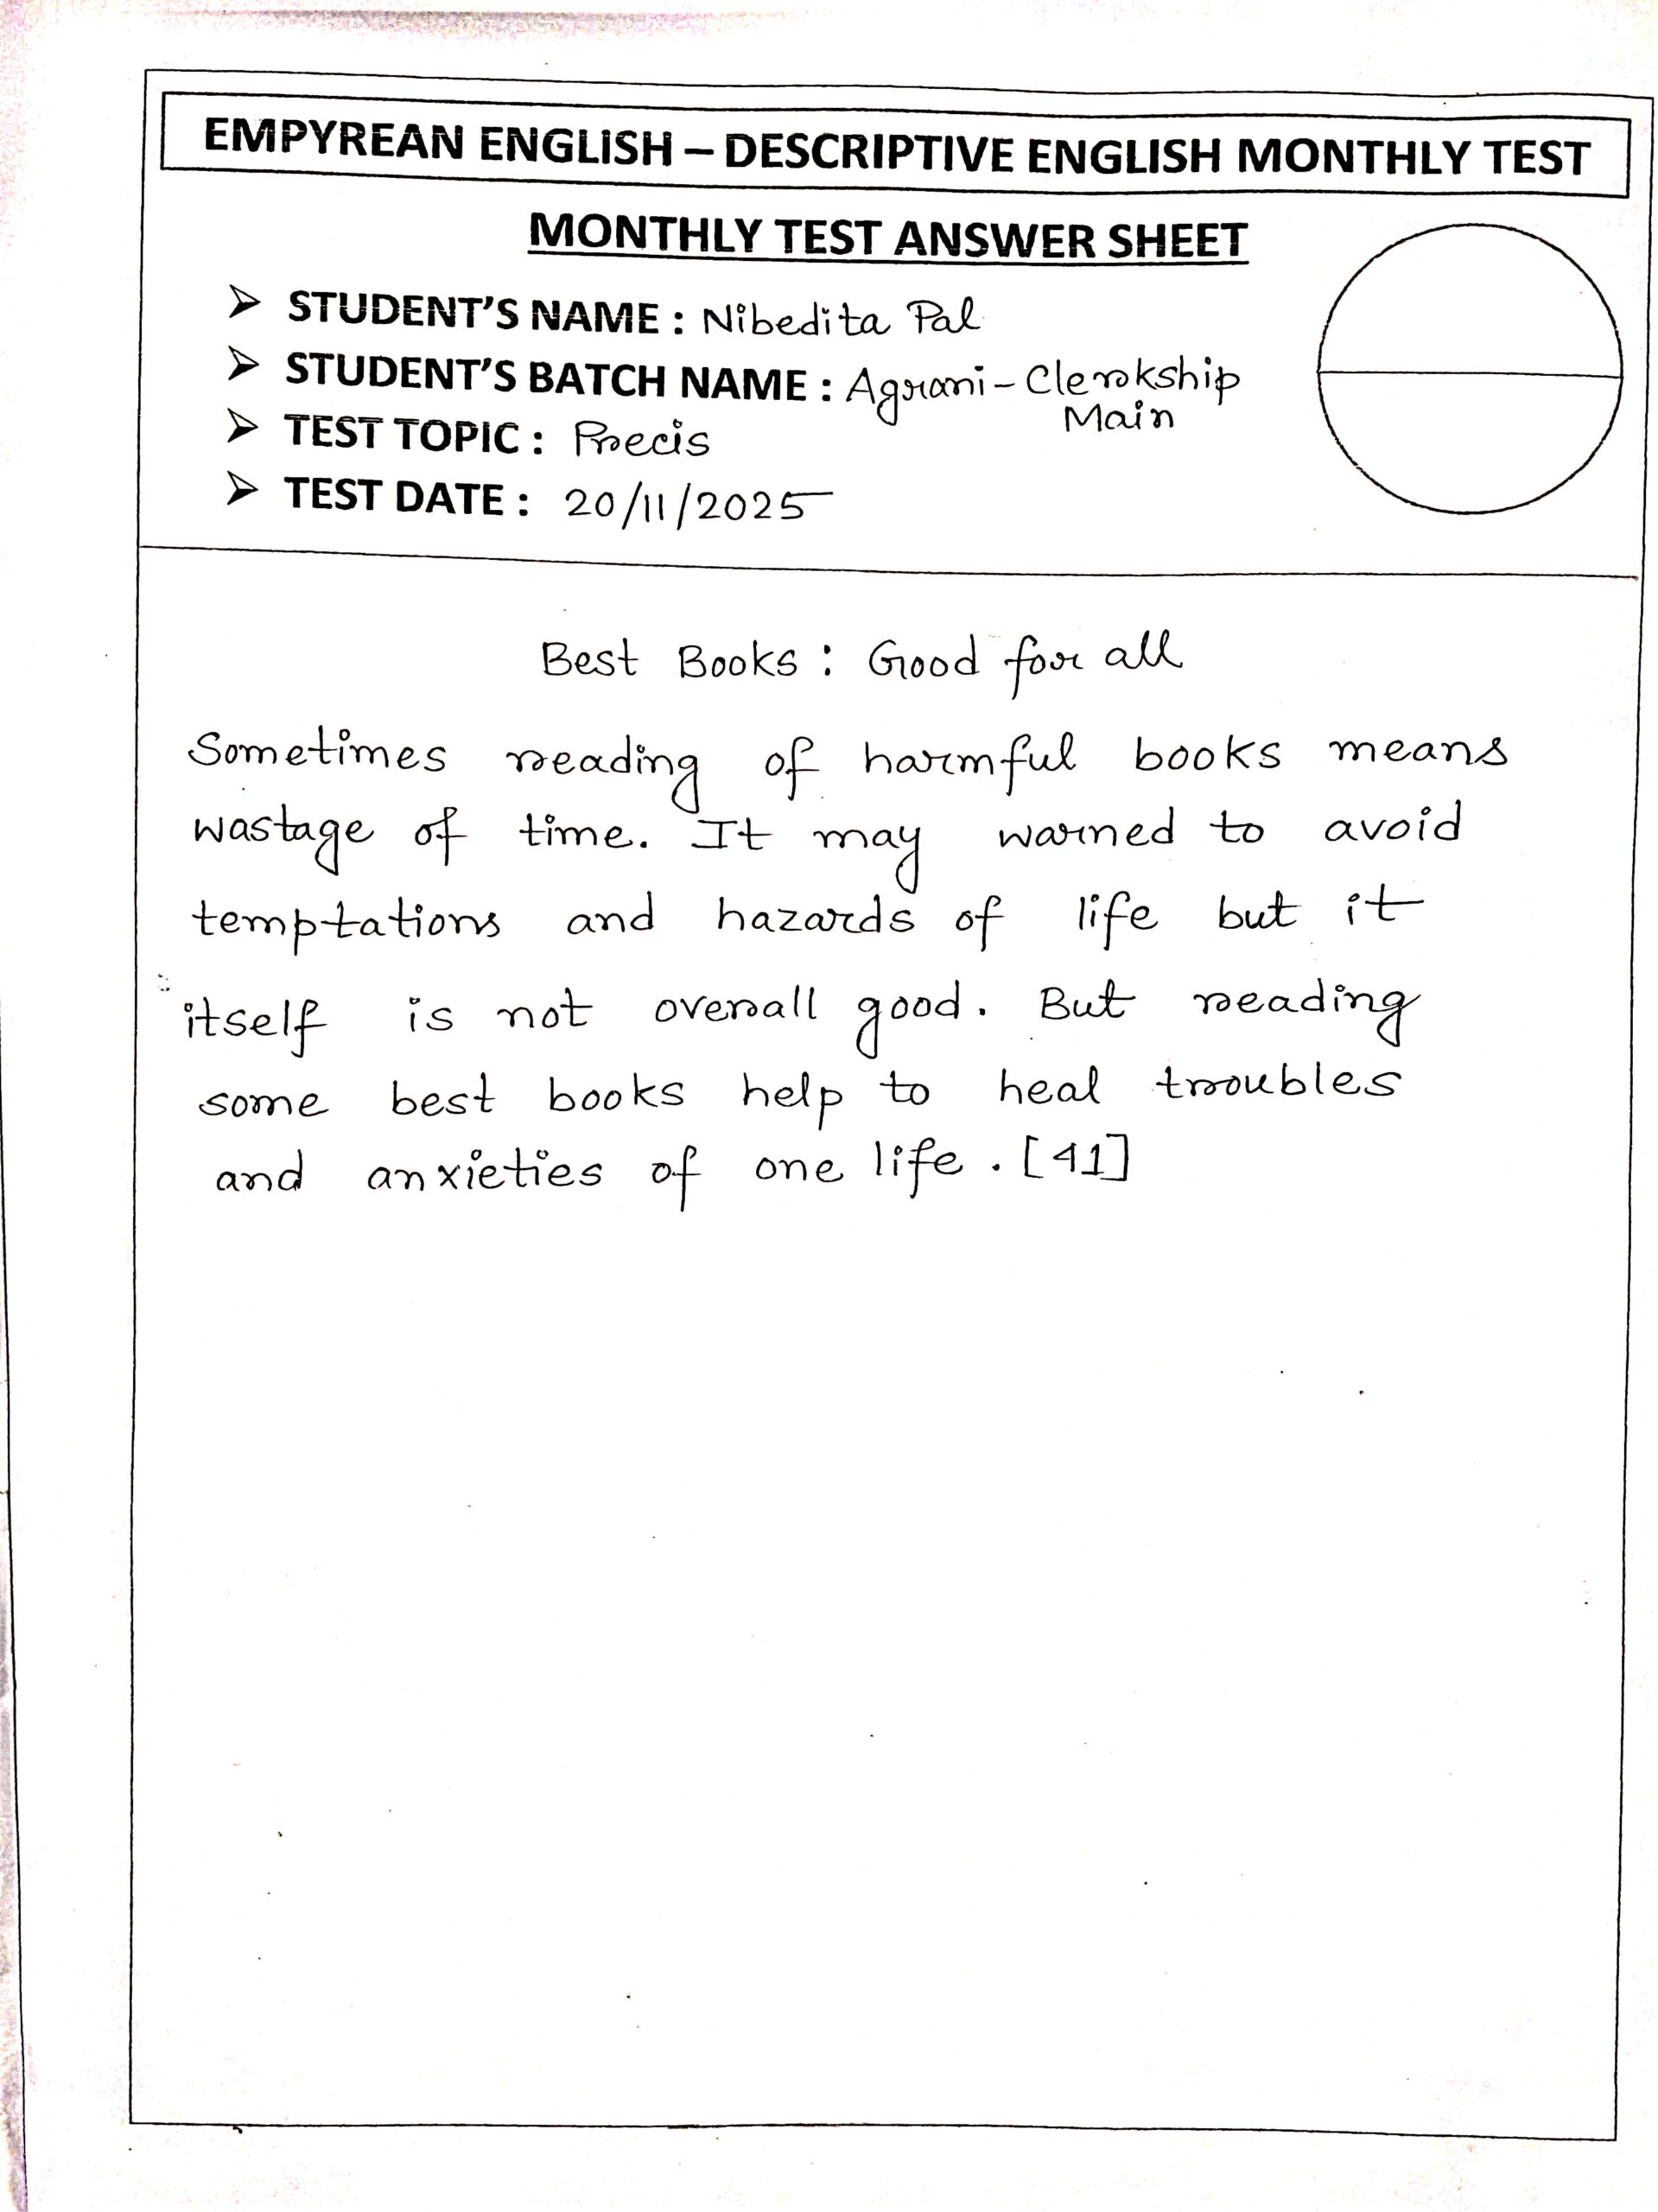 EMPYREAN ENGLISH – DESCRIPTIVE ENGLISH MONTHLY TEST
MONTHLY TEST ANSWER SHEET
➢ STUDENT'S NAME : Nibedita Pal
➢ STUDENT'S BATCH NAME : Agrani - Clerkship
Main
➢ TEST TOPIC : Precis
➢ TEST DATE : 20/11/2025
Best Books : Good for all
Sometimes reading of harmful books means
wastage of time. It may warned to avoid
temptations and hazards of life but it
itself is not overall good. But reading
some best books help to heal troubles
and anxieties of one life. [41]